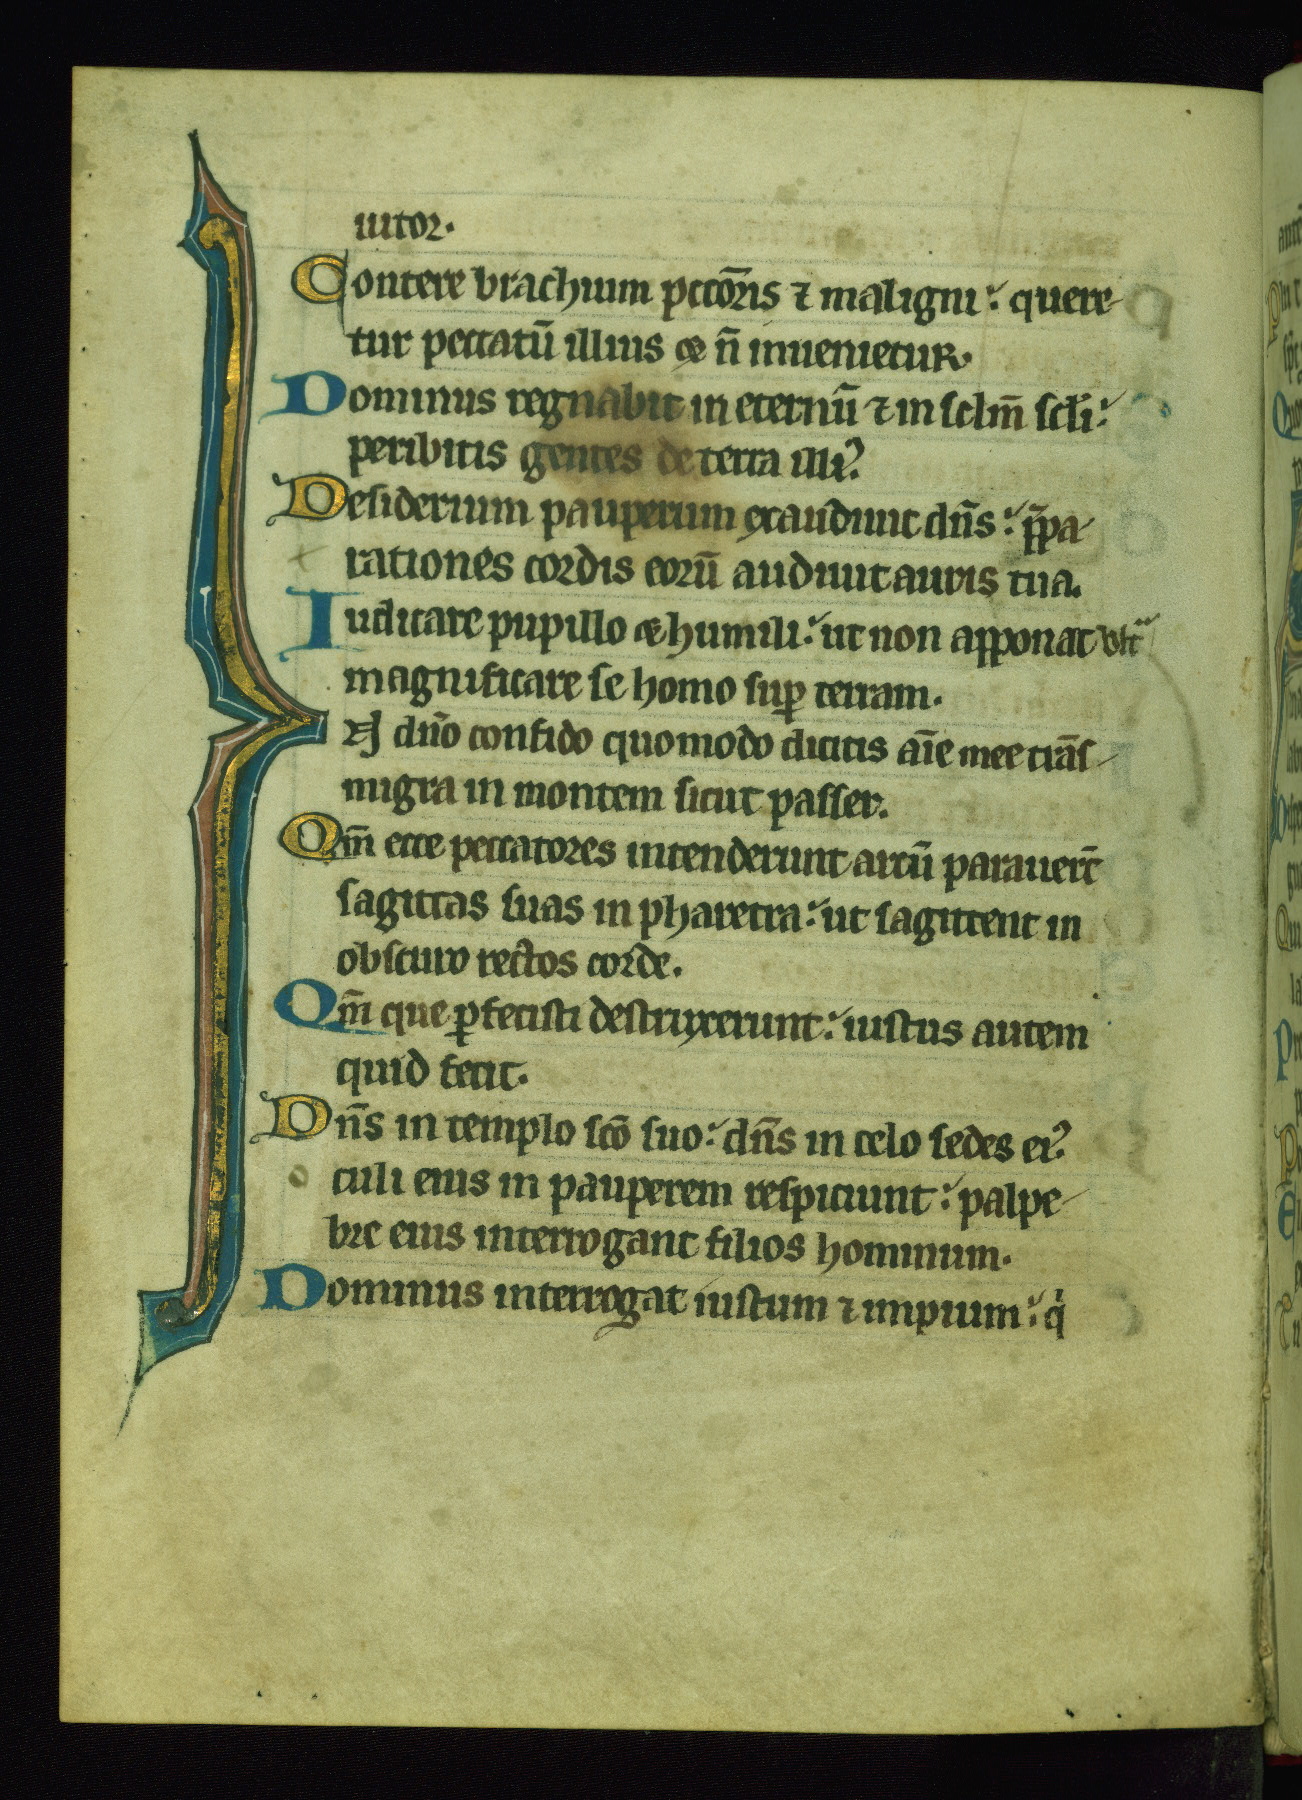 iutor.
Contere brachium pcco͞ris ⁊ maligni: quere-
tur peccatū illius & n̄ inuenietur.
Dominus regnabit in eternū ⁊ in sclm̄ scl̄i:
peribitis gentes de terra illiꝰ.
Desiderium pauperum exaudiuit dn̄s: p̄pa-
rationes cordis eorū audiuit auris tua.
Iudicare pupillo & humili: ut non apponat ult͛
magnificare se homo suꝑ terram.
N dn̄o confido quomodo dicitis aīe mee trās-
migra in montem sicut passer.
Qm̄ ecce peccatores intenderunt arcū parauert̄
sagittas suas in pharetra: ut sagittent in
obscuro rectos corde.
Qm̄ que ꝑfecisti destruxerunt: iustus autem
quid fecit.
Dn̄s in templo scō suo: dn̄s in celo sedes eiꝰ.
culi eius in pauperem respiciunt: palpe-
bre eius interrogant filios hominum.
Dominus interrogat iustum ⁊ impium: qͥ